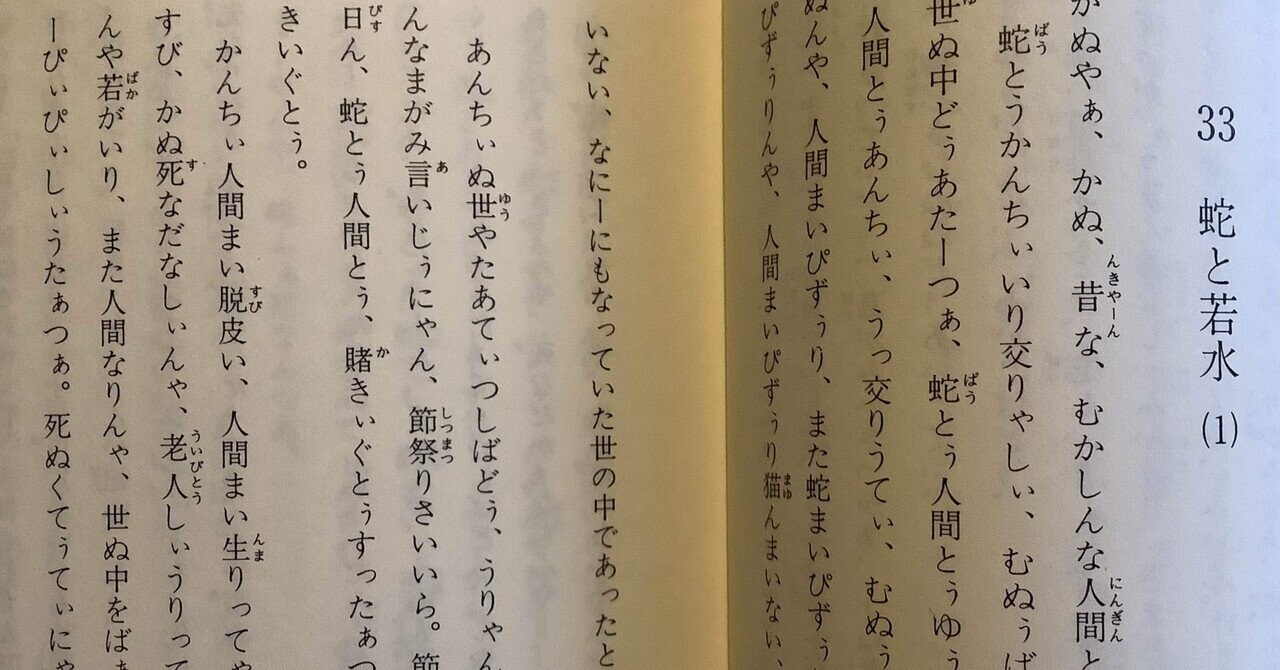 33 蛇と若水 (1)
かぬやぁ、かぬ、昔んきやーんな、むかしんな人間にんぎんと
蛇ぱうとうかんちぃいり交りゃしぃ、むぬぅば
世ゆぬ中どぅあたーつぁ、蛇ぱうとぅ人間とぅゆう
人間とぅあんちぃ、うっ交りうてぃ、むぬう
ぬんや、人間まいぴずぅり、また蛇まいぴずぅ
ぴずぅりんや、人間まいぴずぅり猫まゆんまいない、
いない、なにーにもなっていた世の中であったと
あんちぃぬ世ゆうやたあてぃつしばどぅ、うりゃん
んなまがみ言あいじぅにゃん、節祭しつまつりさいいら。節
日びすん、蛇とぅ人間とぅ、賭かきぃぐとぅすったぁつ
きいぐとぅ。
かんちぃ人間まい脱皮すびい、人間まい生んまりってゃ
すび、かぬ死すなだなしぃんゃ、老人ういびとうしぃうりって
んや若ばかがいり、また人間なりんゃ、世ぬ中をばぁ
ーぴぃぴぃしぃうたぁつぁ。死ぬくてぅてぃにゃ